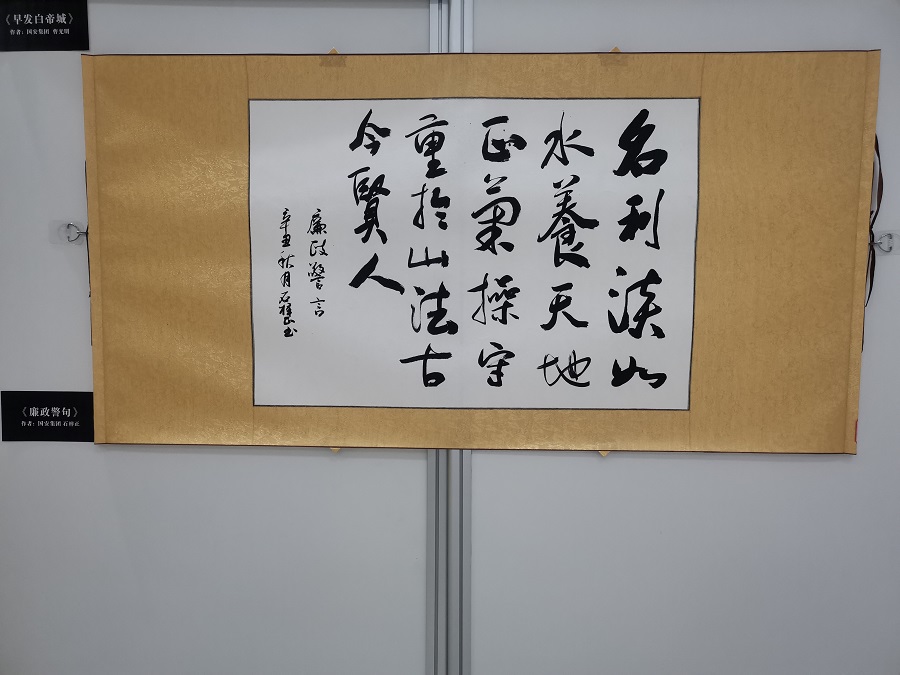 《早发白帝城》
作者：国安集团 曾光明
名利淡如
水養天地
正氣操守
重於山法古
今賢人
廉政警言
辛丑秋月石祥正书
《廉政警句》
作者：国安集团 石祥正